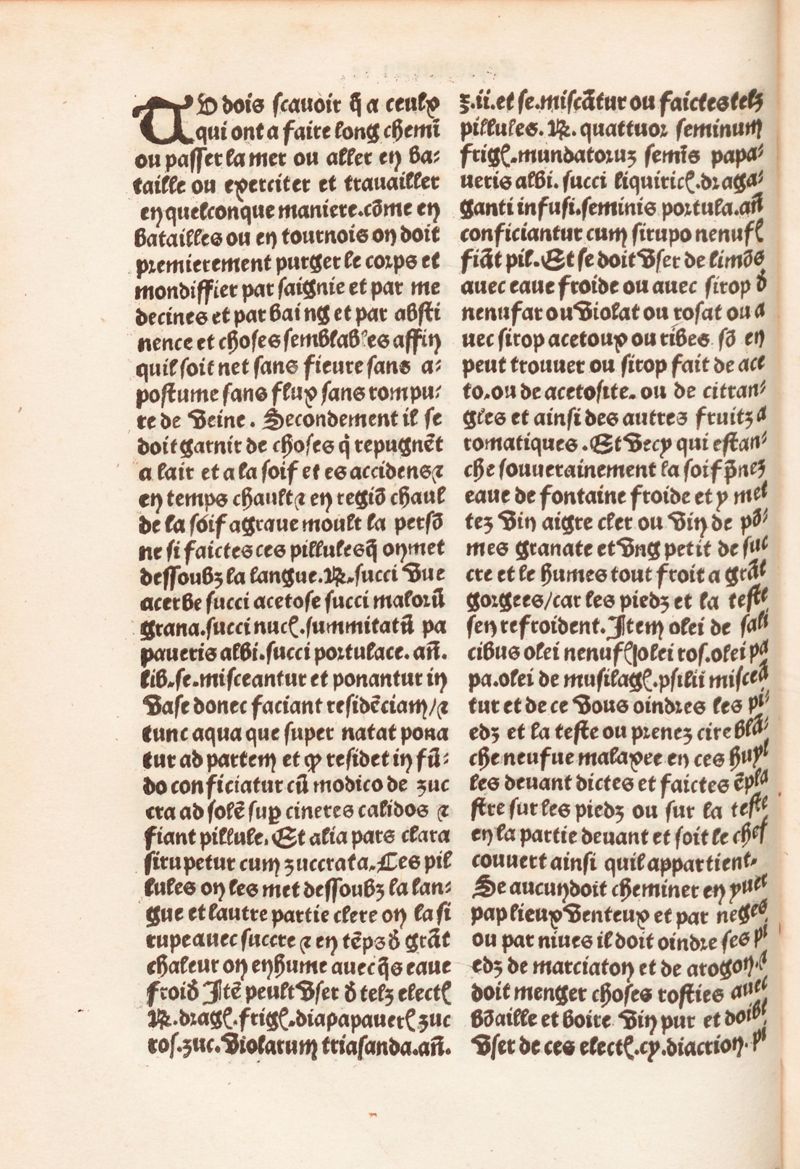 TV dois scavoir q̃ a ceulx
qui ont a faire long chemĩ
ou passer la mer ou aller en ba⸗
taille ou exerciter et travailler
en quelconque maniere.cõme en
batailles ou en tournois on doit
premierement purger le corps et
mondiffier par saignie et par me
decines et par baing et par absti
nence et choses semblables affin
quil soit net sans fieure sans a⸗
postume sans flux sans rompu⸗
re de veine. Secondement il se
doit garnir de choses q̃ repugnẽt
a lair et a la soif et es accidens⁊
en temps chault⁊ en regiõ chaul
de la soif agraue moult la persõ
ne si faictes ces pillules q̃ on met
dessoubz la langue.℞.succi vue
acerbe succi acetose succi malorũ
grana.succi nucꝭ.summitatũ pa
paueris albi.succi portulace.añ.
lib.se.misceantur et ponantur in
vase donec faciant residẽciam/⁊
tunc aqua que super natat pona
tur ad partem et ꝙ residet in fũ⸗
do conficiatur cũ modico de zuc
cra ad solẽ sup cineres calidos ⁊
fiant pillule. Et alia pars clara
sirupetur cum zuccrata.Ces pil
lules on les met dessoubz la lan⸗
gue et lautre partie clere on la si
rupe auec succre ⁊ en tẽps d̃ grãt
chaleur on en hume auec q̃s eaue
froid̃ Itẽ peult vser d̃ telz electꝭ
℞.dragꝭ.frigꝭ.diapapauerꝭ zuc
ros.zuc.violarum triasanda.añ.
ʒ.ii.et se.miscãtur ou faictes telz
pillules.℞. quattuor seminum
frigꝭ.mundatoruz semĩs papa⸗
ueris albi. succi liquiricꝭ.draga⸗
ganti infusi.seminis portula.añ
conficiantur cum sirupo nenufꝭ
fiãt pil.Et se doit vser de limõs
auec eaue froide ou auec sirop d̃
nenufar ou violat ou rosat ou a
uec sirop acetoux ou ribes sõ en
peut trouuer ou sirop fait de ace
to.ou de acetosite. ou de citran⸗
gles et ainsi des autres fruitz a
romatiques .Et vecy qui estan⸗
che souuerainement la soif p̃nez
eaue de fontaine froide et y met
tez vin aigre cler ou vin de põ⸗
mes granate et vng petit de suc
cre et le humes tout froit a grãt
gorgees/car les piedz et la teste
sen refroident.Item olei de sali
cibus olei nenufꝭolei ros.olei pa
pa.olei de musilagꝭ.psilii misceã
tur et de ce vous oindres les pi⸗
edz et la teste ou prenez cire blã⸗
che neufue malaxee en ces huyl
les deuant dictes et faictes ẽpla
stre sur les piedz ou sur la teste
en la partie deuant et soit le chef
couuert ainsi quil appartient.
Se aucun doit cheminer en yuer
pap lieux venteux et par neges
ou par niues il doit oindre ses pi
edz de marciaton et de arogon.⁊
doit menger choses rosties auec
võaille et boire vin pur et doibt
vser de ces electꝭ.cy.diacrion.pi